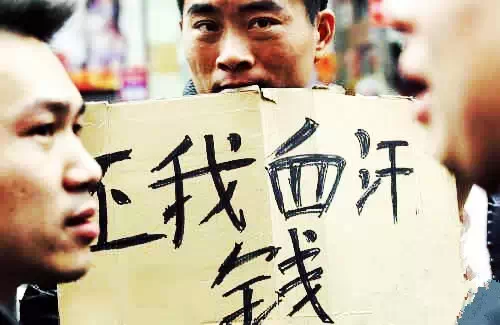 还我血汗
钱